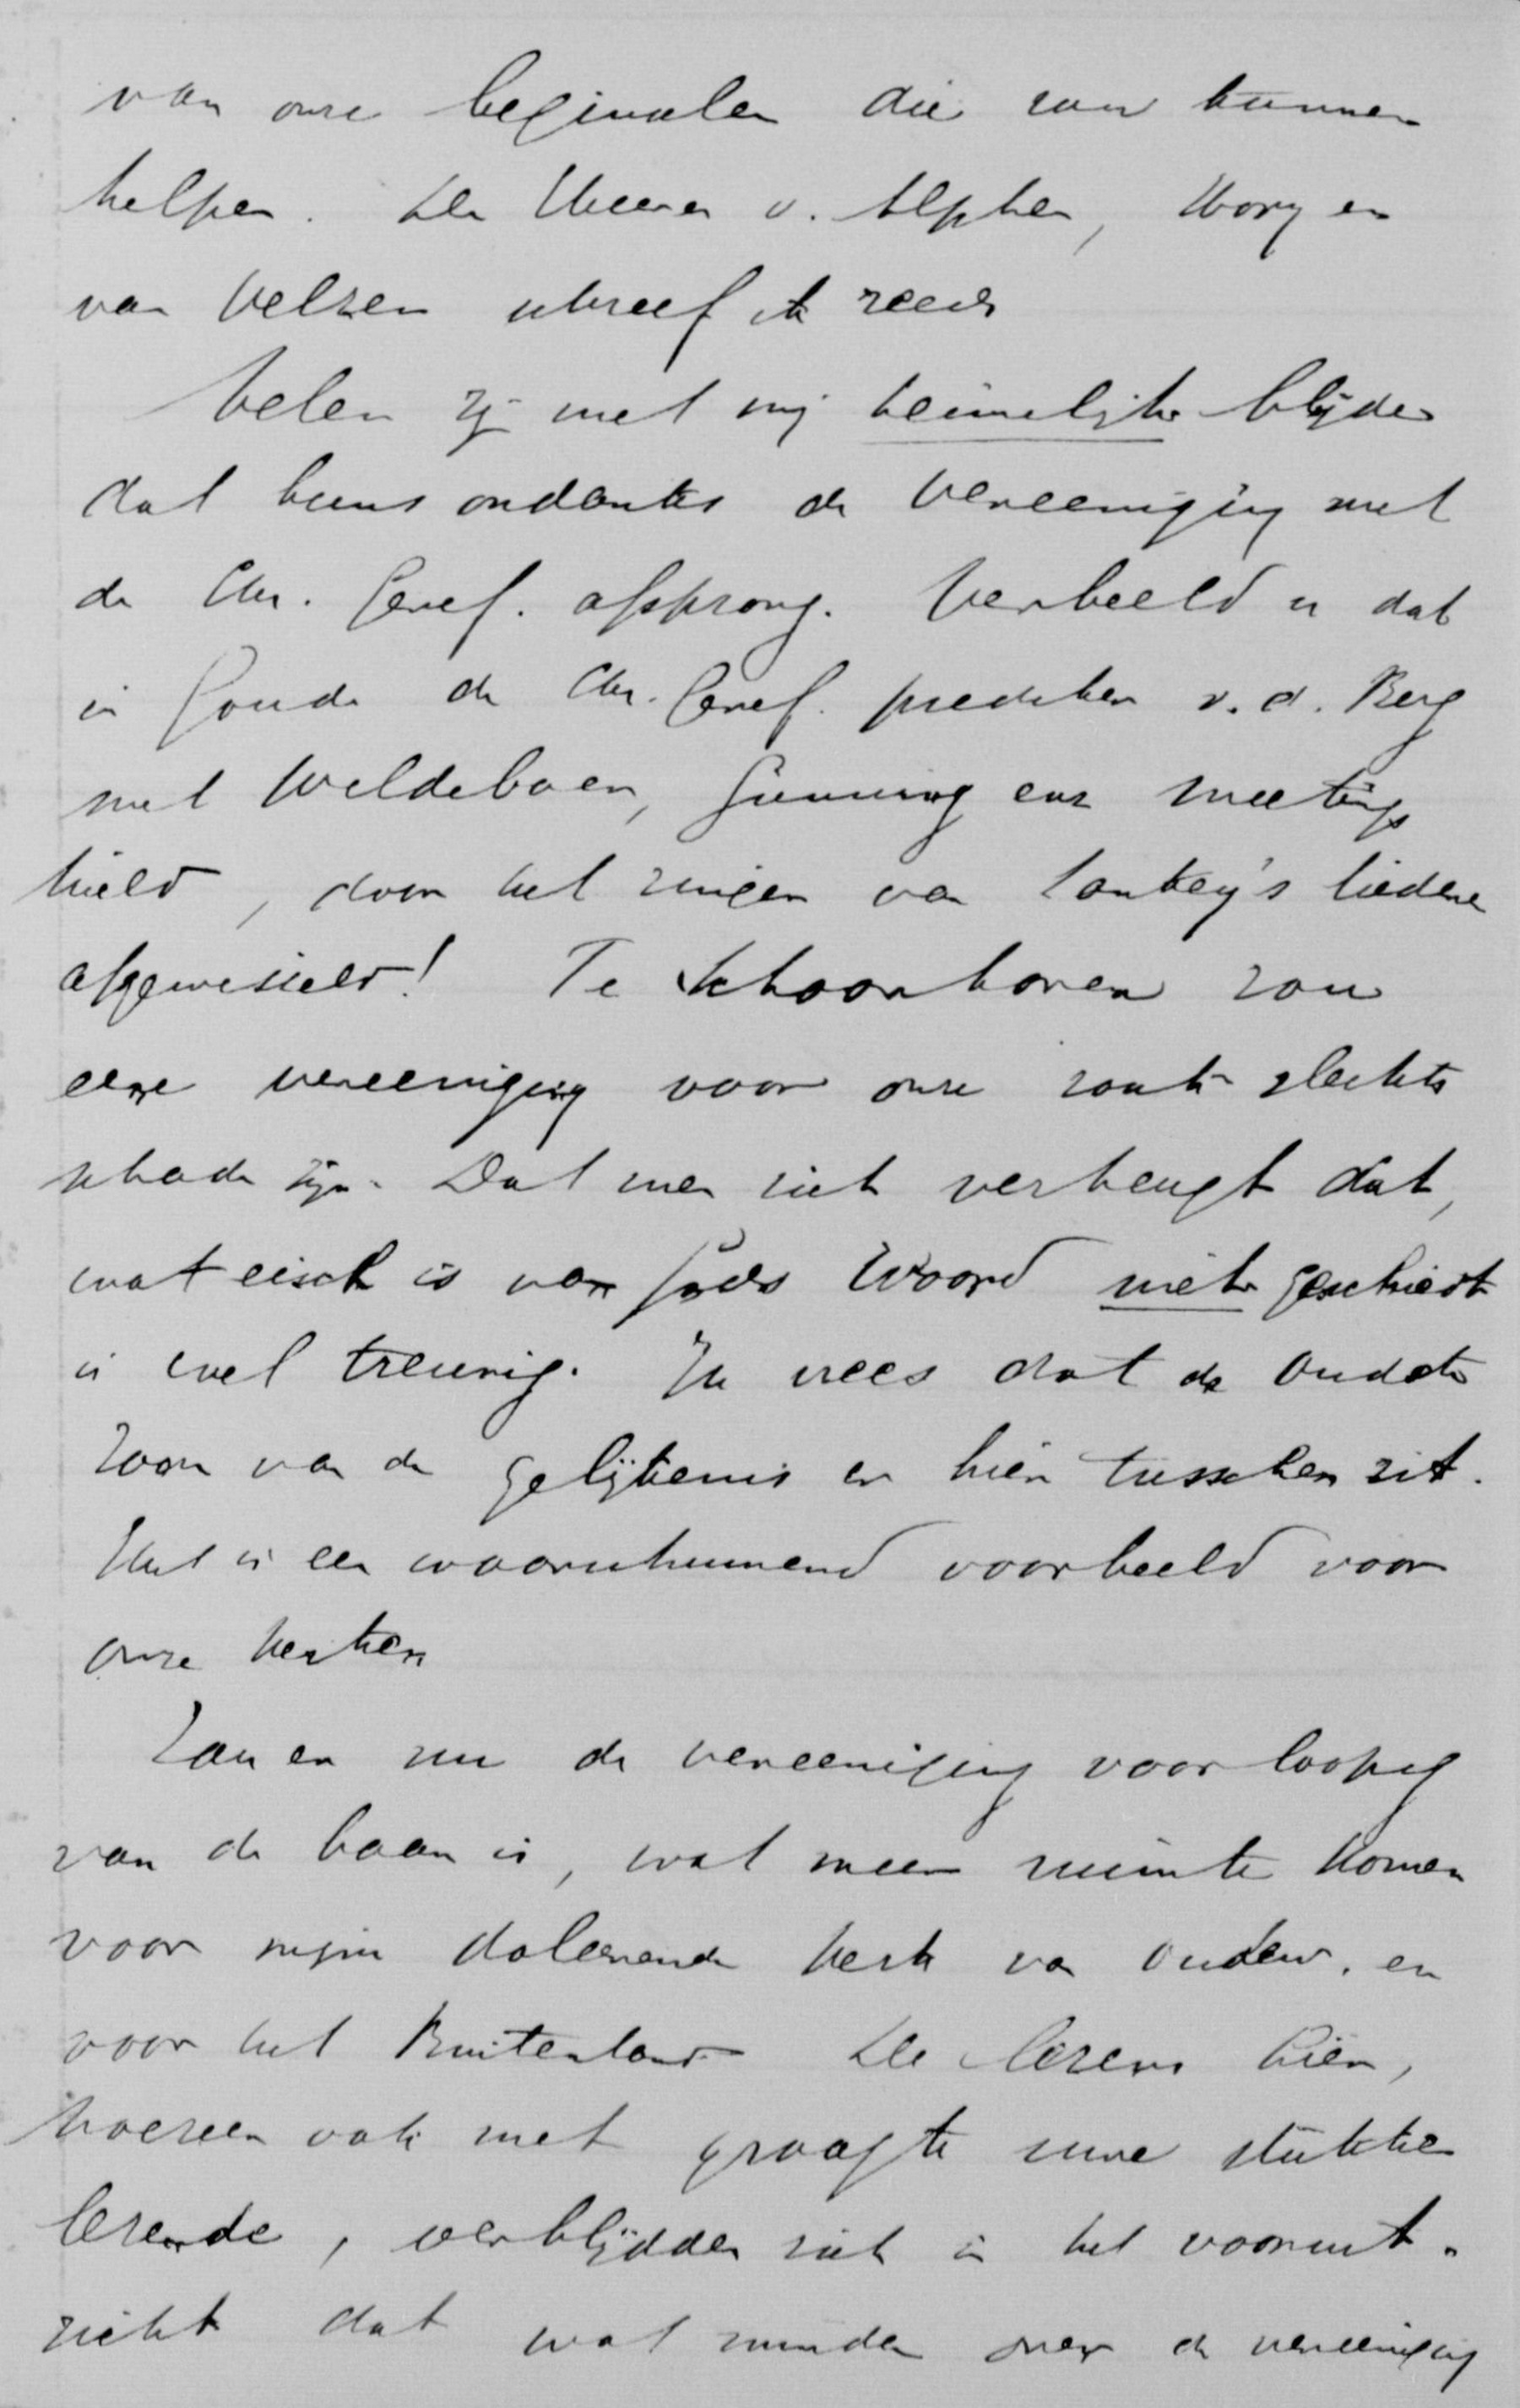 van onze beginselen die zou kunnen
helpen. De Heeren v. Alphen, Hovy en
van Velzen schreef ik reeds
Velen zijn met mij heimelijk blijde
dat huns ondanks de vereeniging met
de Chr. Geref. afsprong. Verbeeld u dat
in Gouda de Chr. Geref. prediker v. d. Berg
met Weldeboer, Gunning enz meetings
hield, door het zingen van Sankey's liederen
afgewisseld! Te Schoonhoven zou
eene vereeniging voor onze zaak slechts
schade zijn. Dat men zich verheugt dat,
wat eisch is van Gods Woord niet geschiedt
is wel treurig. Ik vrees dat de oudste
zoon van de gelijkenis er hier tusschen zit.
Het is een waarschuwend voorbeeld voor
onze kerken
Zou er nu de vereeniging voorloopig
van de baan is, wat meer ruimte komen
voor mijn doleerende kerk van Oudew. en
voor het Buitenland De lezers hier,
hoezeer ook met graagte uwe stukken
lezende, verblijdden zich in het vooruit-
zicht dat wat minder over de vereeniging